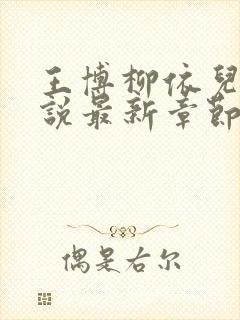 王博柳依兒
說最新章節
偶是右尔